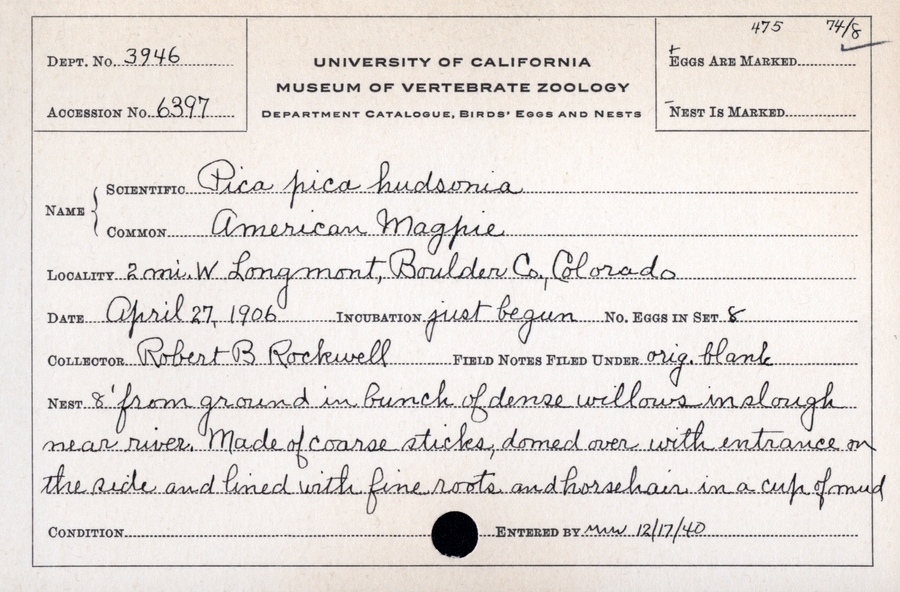 475 74/8
Dept. No. 3946
UNIVERSITY OF CALIFORNIA
+
Eggs Are Marked
MUSEUM OF VERTEBRATE ZOOLOGY
Accession No. 6397
Department Catalogue, Birds' Eggs and Nests
-
Nest Is Marked
Name
Scientific Pica pica hudsonia
Common American Magpie
Locality 2 mi. W Longmont, Boulder Co., Colorado
Date April 27, 1906 Incubation just begun No. Eggs in Set 8
Collector Robert B Rockwell Field Notes Filed Under orig. blank
Nest 8' from ground in bunch of dense willows in slough
near river. Made of coarse sticks, domed over with entrance on
the side and lined with fine roots and horsehair in a cup of mud
Condition Entered by 12/17/40